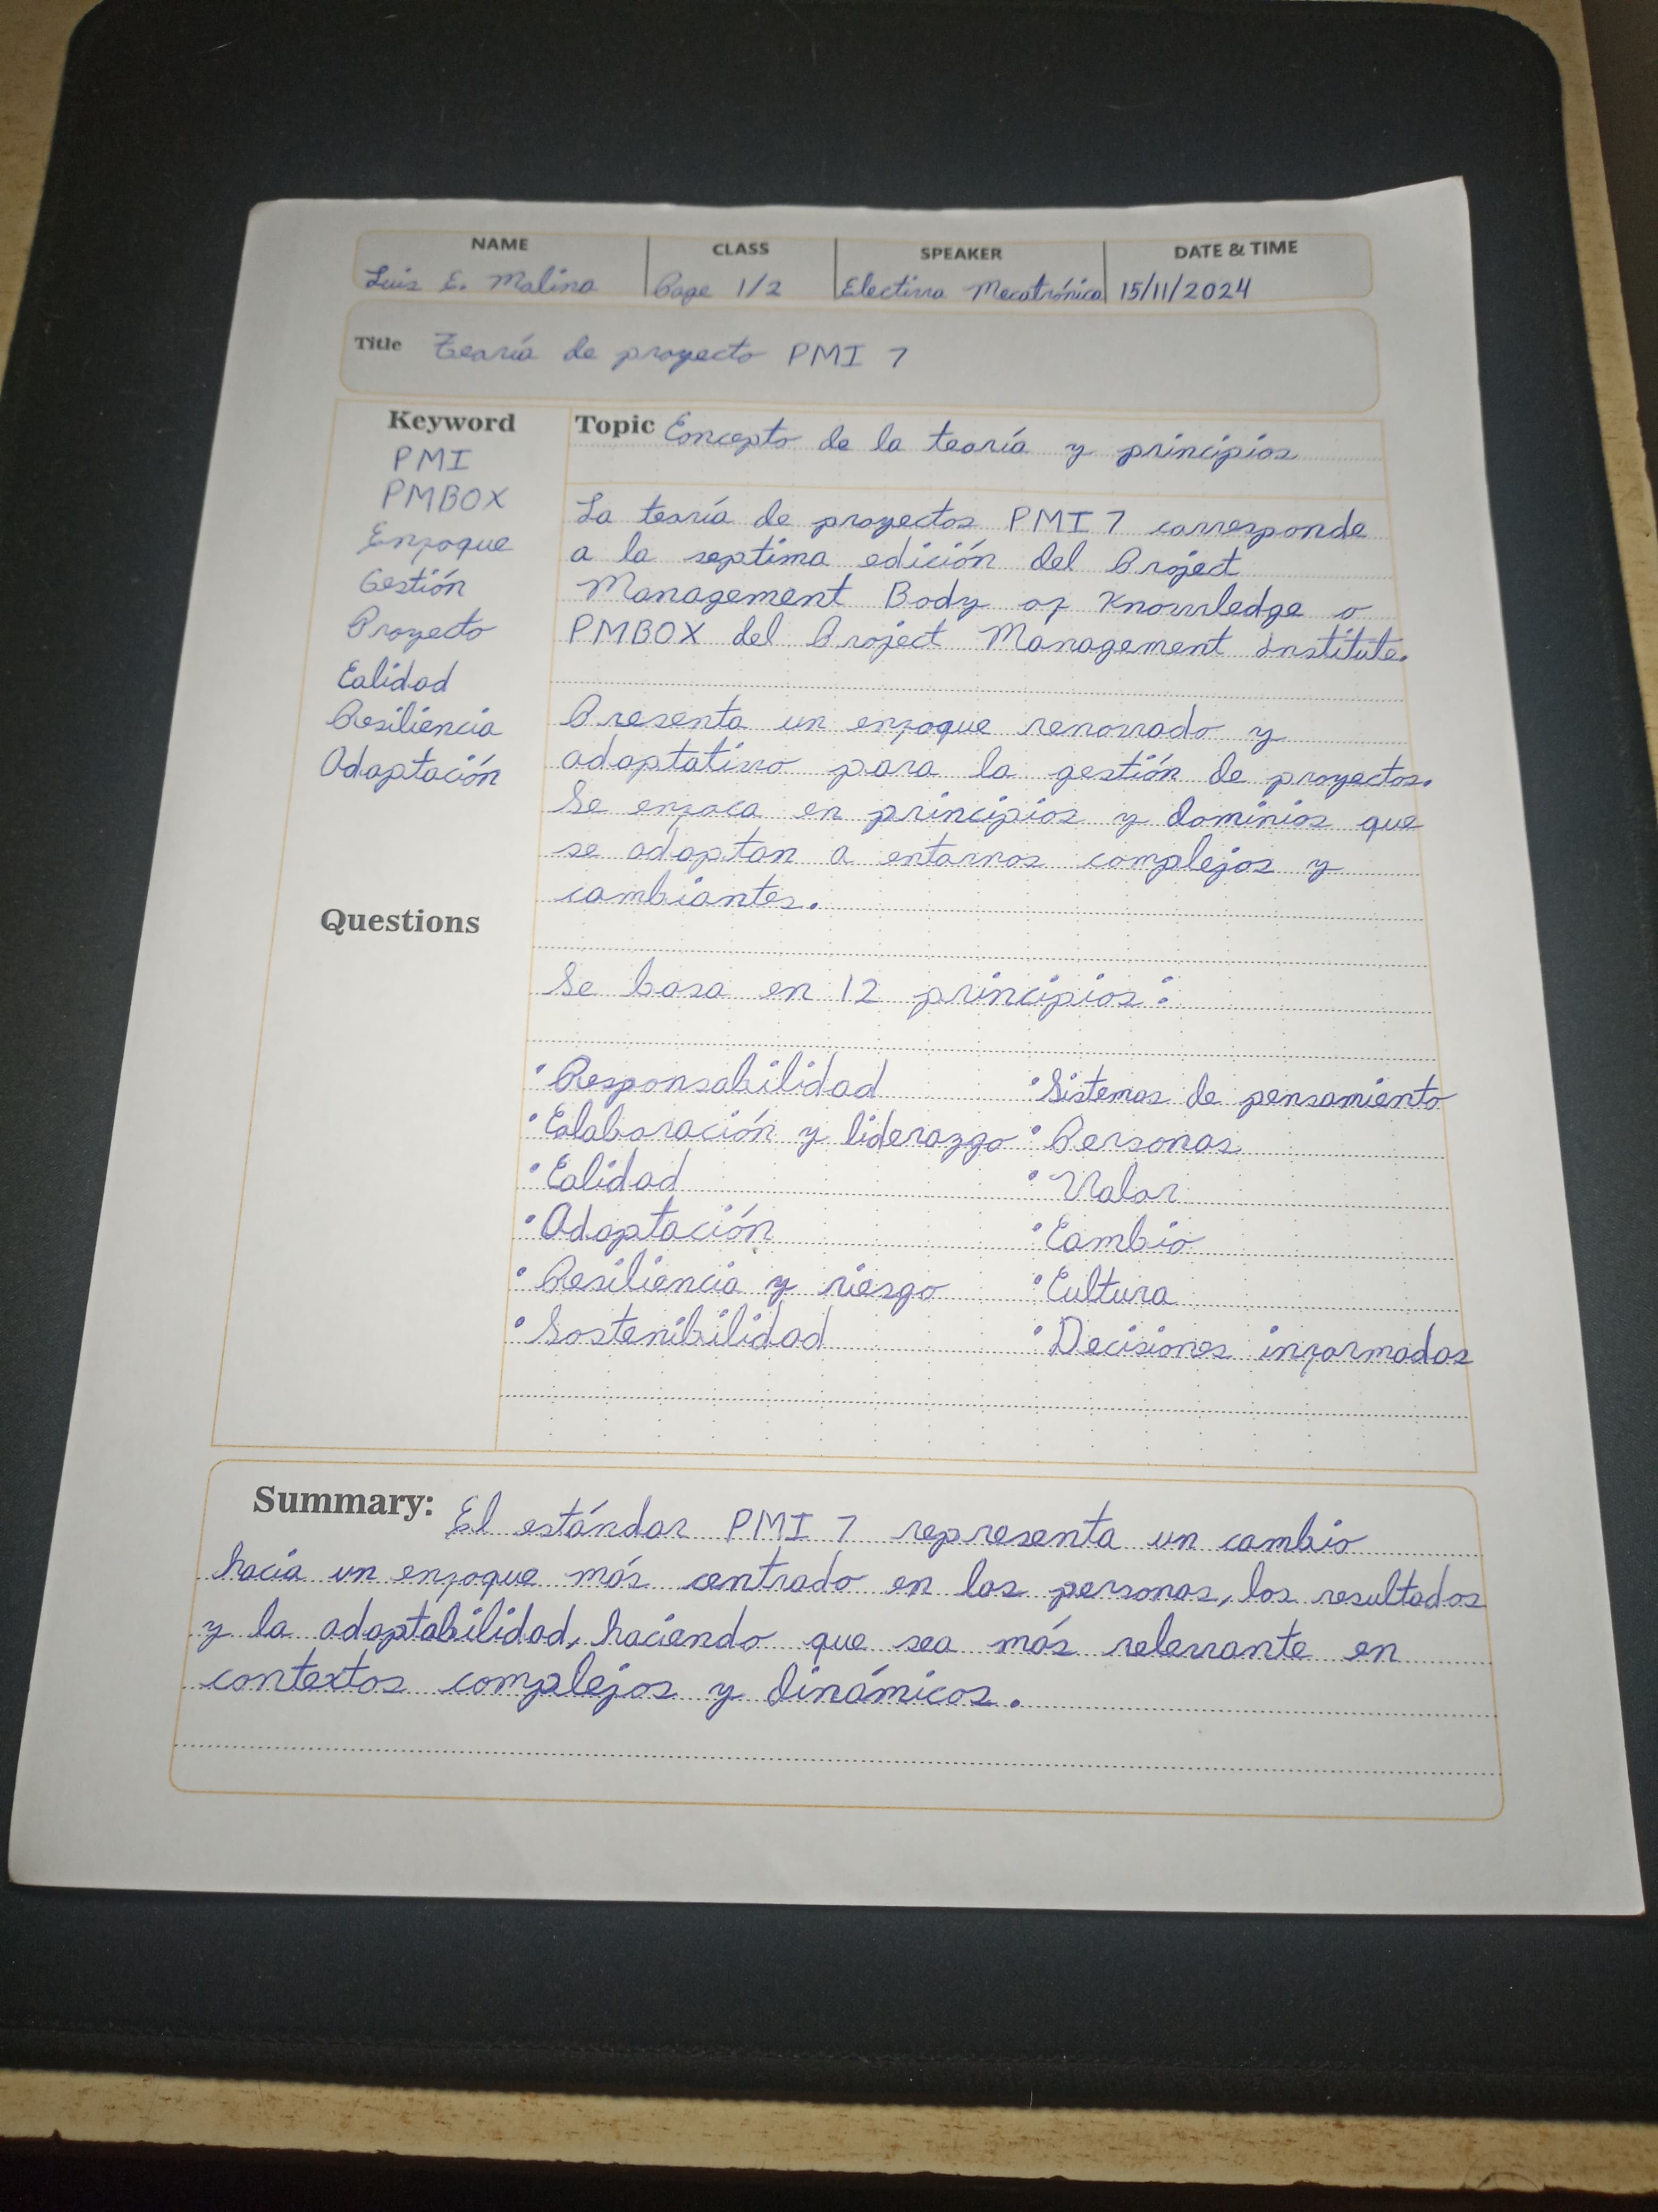 NAME CLASS SPEAKER DATE & TIME
Luis E. Molina Page 1/2 Electiva Mecatrónica 15/11/2024
Title Teoría de proyecto PMI 7
Keyword
PMI
PMBOX
Enfoque
Gestión
Proyecto
Calidad
Resiliencia
Adaptación
Questions
Topic Concepto de la teoría y principios
La teoría de proyectos PMI 7 corresponde
a la septima edición del Project
Management Body of Knowledge o
PMBOX del Project Management Institute.
Presenta un enfoque renovado y
adaptativo para la gestión de proyectos.
Se enfoca en principios y dominios que
se adaptan a entornos complejos y
cambiantes.
Se basa en 12 principios:
• Responsabilidad • Sistemas de pensamiento
• Colaboración y liderazgo • Personas
• Calidad • Valor
• Adaptación • Cambio
• Resiliencia y riesgo • Cultura
• Sostenibilidad • Decisiones informadas
Summary: El estándar PMI 7 representa un cambio
hacia un enfoque más centrado en las personas, los resultados
y la adaptabilidad, haciendo que sea más relevante en
contextos complejos y dinámicos.